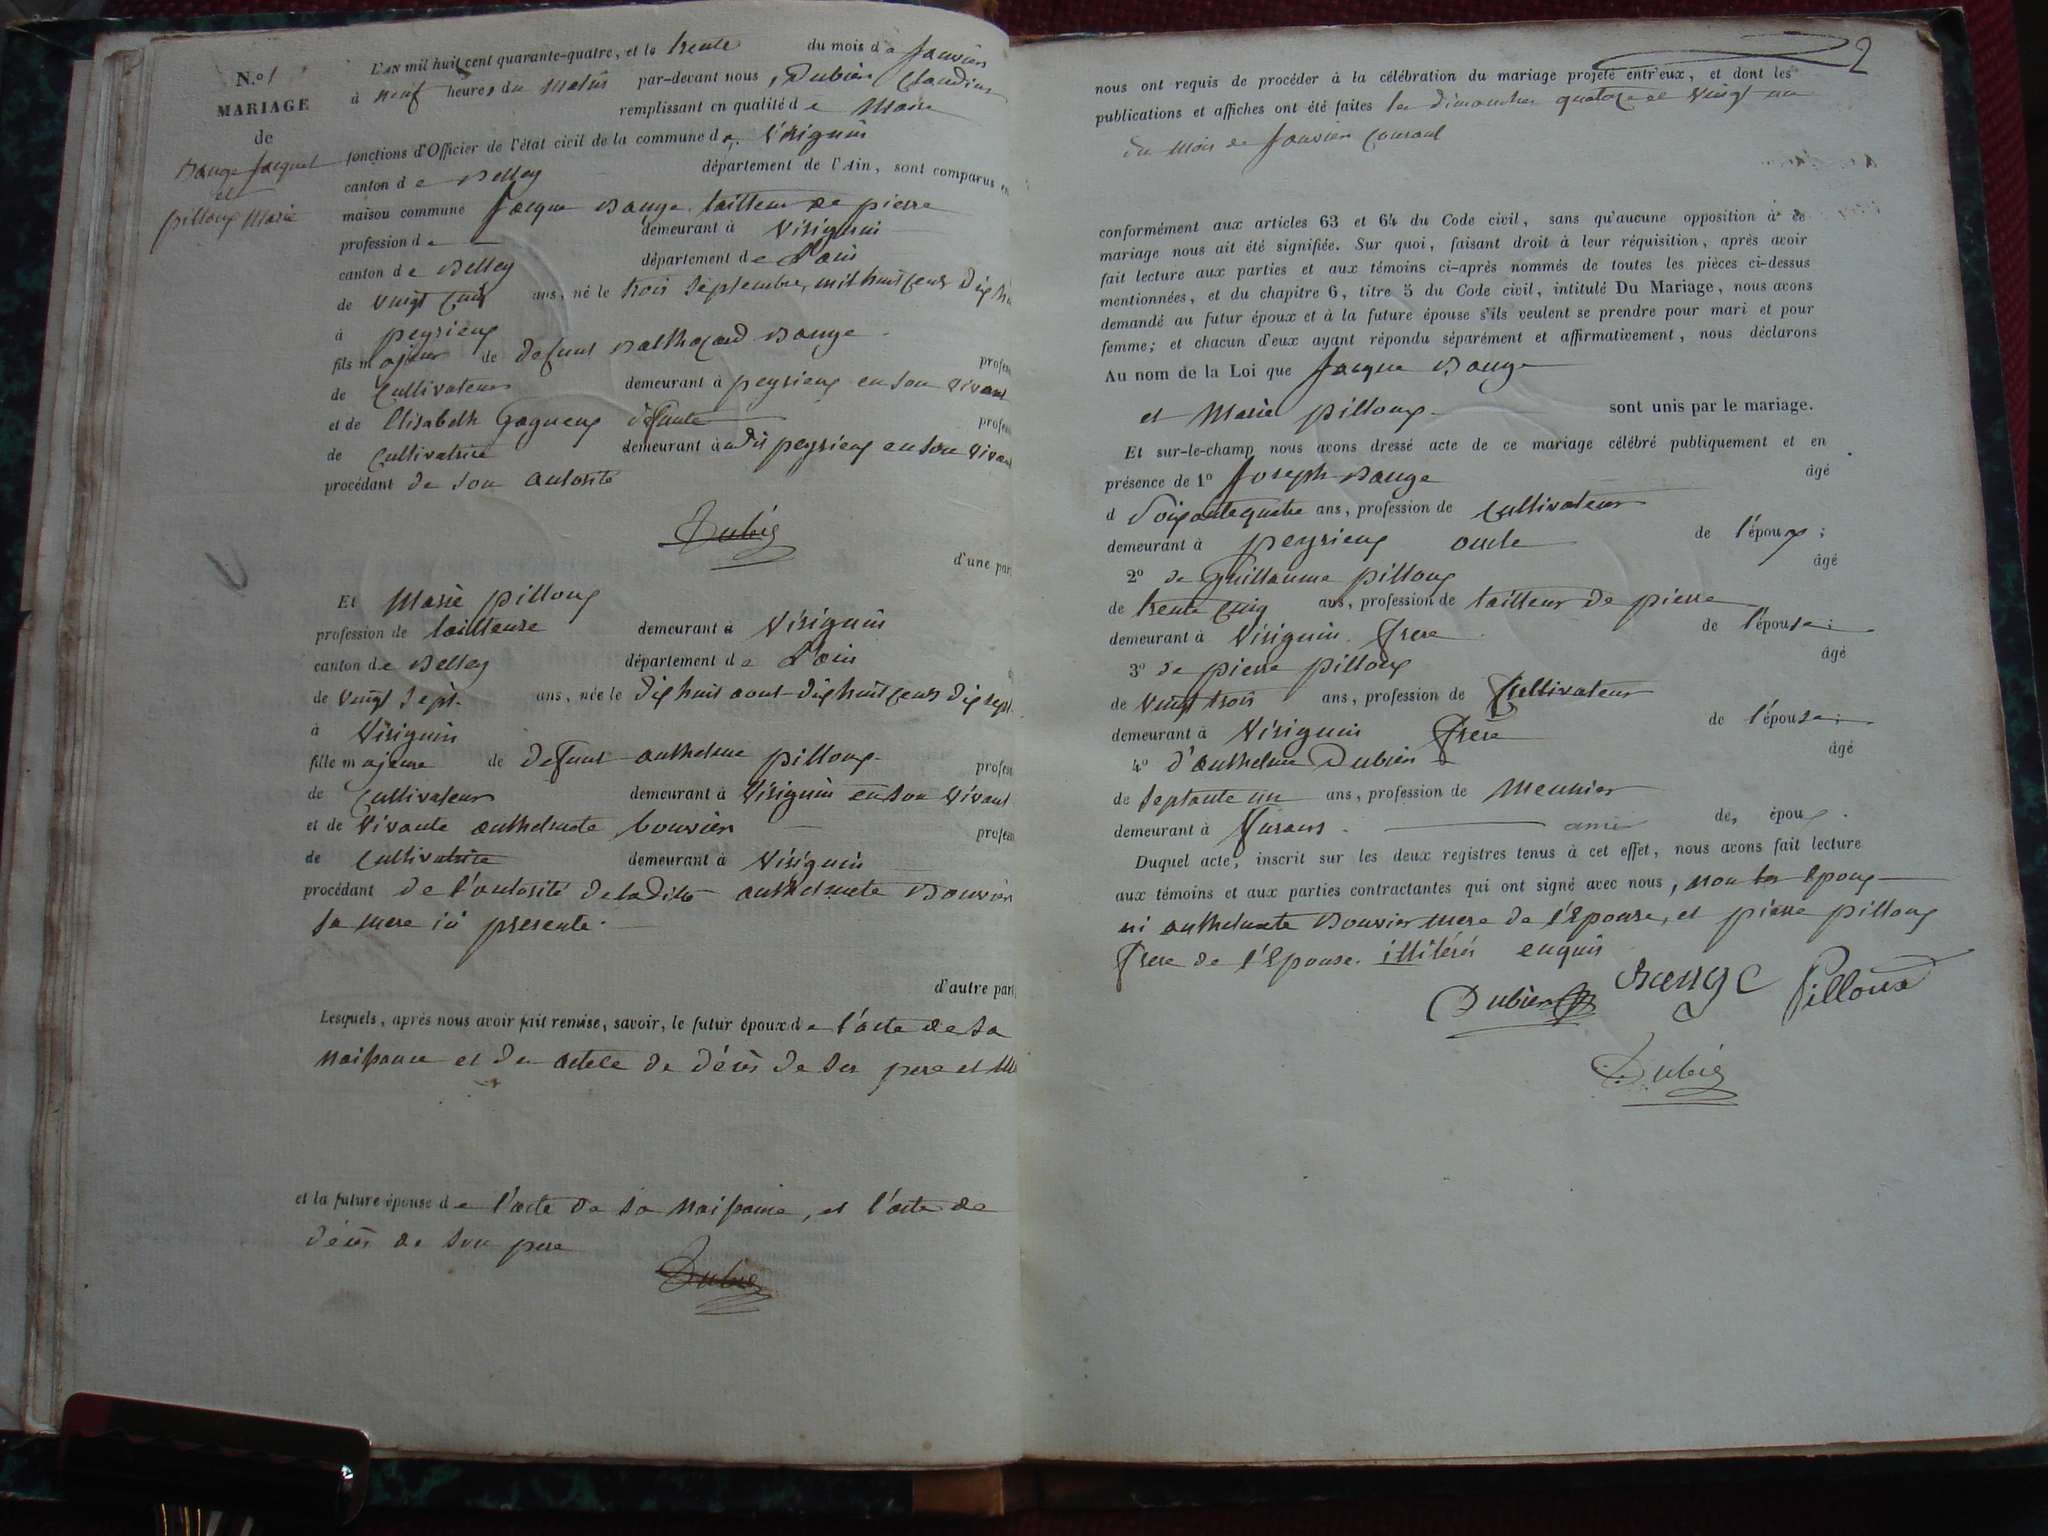 N.o 1
MARIAGE
de
Bauge Jacques
et
pilloux Marie
L'AN mil huit cent quarante-quatre, et le trente du mois de Janvier
à neuf heures du Matin par-devant nous, Dubien Claudius
remplissant en qualité de Maire
fonctions d'Officier de l'état civil de la commune de Virignin
canton de Belley département de l'Ain, sont comparus en
maison commune Jacque Bauge tailleur de pierre
profession de — demeurant à Virignin
canton de Belley département de L'ain
de vingt cinq ans, né le trois septembre, mil huit cent dix hu
à peyrieux
fils majeur de defunt Balthazard Bauge
profes
de Cultivateur demeurant à peyrieux en son vivant
et de Elisabeth Gagneux défunte profes
de Cultivatrice demeurant à udit peyrieux en son vivant
procédant de son autorité
Dubien
d'une part
Et Marie pilloux
profession de tailleuse demeurant à Virignin
canton de Belley département de L'ain
de vingt sept ans, née le dix huit aout dix huit cent dix sept
à Virignin
fille majeure de defunt anthelme pilloux profess
de Cultivateur demeurant à Virignin en son vivant
et de vivante anthelmete bouvier profess
de Cultivatrice demeurant à Virignin
procédant de l'autorité de ladite anthelmete Bouvier
sa mere ici presente.
d'autre part
Lesquels, après nous avoir fait remise, savoir, le futur époux de l'acte de sa
naissance et des actes de décès de ses pere et m
et la future épouse de l'acte de sa naissance, et l'acte de
décès de son pere
Dubien
2
nous ont requis de procéder à la célébration du mariage projeté entr'eux, et dont les
publications et affiches ont été faites les dimanches quatorze et vingt un
du mois de Janvier courant
conformément aux articles 63 et 64 du Code civil, sans qu'aucune opposition à ce
mariage nous ait été signifiée. Sur quoi, faisant droit à leur réquisition, après avoir
fait lecture aux parties et aux témoins ci-après nommés de toutes les pièces ci-dessus
mentionnées, et du chapitre 6, titre 5 du Code civil, intitulé Du Mariage, nous avons
demandé au futur époux et à la future épouse s'ils veulent se prendre pour mari et pour
femme; et chacun d'eux ayant répondu séparément et affirmativement, nous déclarons
Au nom de la Loi que Jacque Bauge
et Marie pilloux sont unis par le mariage.
Et sur-le-champ nous avons dressé acte de ce mariage célébré publiquement et en
présence de 1o Joseph Bauge âgé
d Soixante quatre ans, profession de Cultivateur
demeurant à peyrieux oncle de l'époux;
2o de Guillaume pilloux âgé
de trente cinq ans, profession de tailleur de pierre
demeurant à Virignin frere de l'épouse;
3o de pierre pilloux âgé
de vingt trois ans, profession de Cultivateur
demeurant à Virignin frere de l'épouse;
4o d'anthelme Dubien âgé
de septante un ans, profession de Meunier
demeurant à Furans. ami des époux.
Duquel acte, inscrit sur les deux registres tenus à cet effet, nous avons fait lecture
aux témoins et aux parties contractantes qui ont signé avec nous, non les Epoux
ni anthelmete Bouvier mere de l'Epouse, et pierre pilloux
frere de l'Epouse. illitérés enquis
Dubien Bauge Pilloux
Dubien